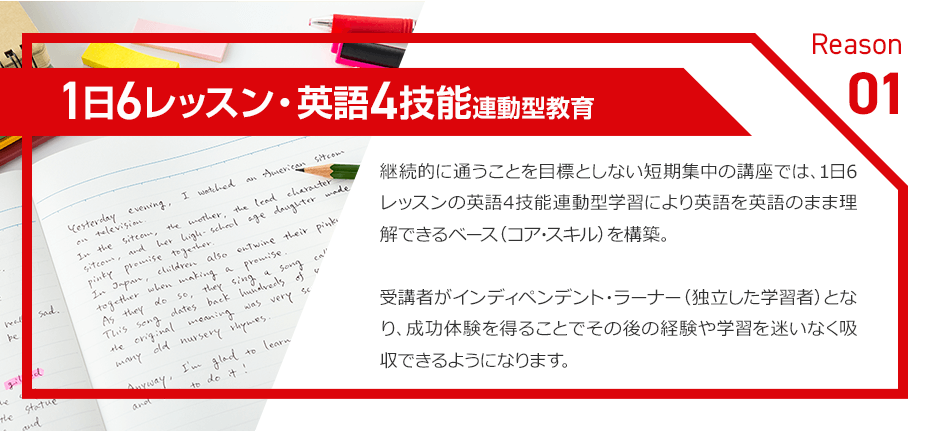 Reason
01
1日6レッスン・英語4技能連動型教育
継続的に通うことを目標としない短期集中の講座では、1日6
レッスンの英語4技能連動型学習により英語を英語のまま理
解できるベース（コア・スキル）を構築。
受講者がインディペンデント・ラーナー（独立した学習者）とな
り、成功体験を得ることでその後の経験や学習を迷いなく吸
収できるようになります。
Yesterday evening, I watched an American sitcom
on television.
In the sitcom, the mother, the lead character
sitcom, and her high-school age daughter made
pinky promise together.
In Japan, children also entwine their pink
together when making a promise.
As they do so, they sing a song call
This song dates back hundreds of
the original meaning was very sc
many old nursery rhymes.
Anyway, I'm glad to learn
and to do it!
sad.
be
the statue
and